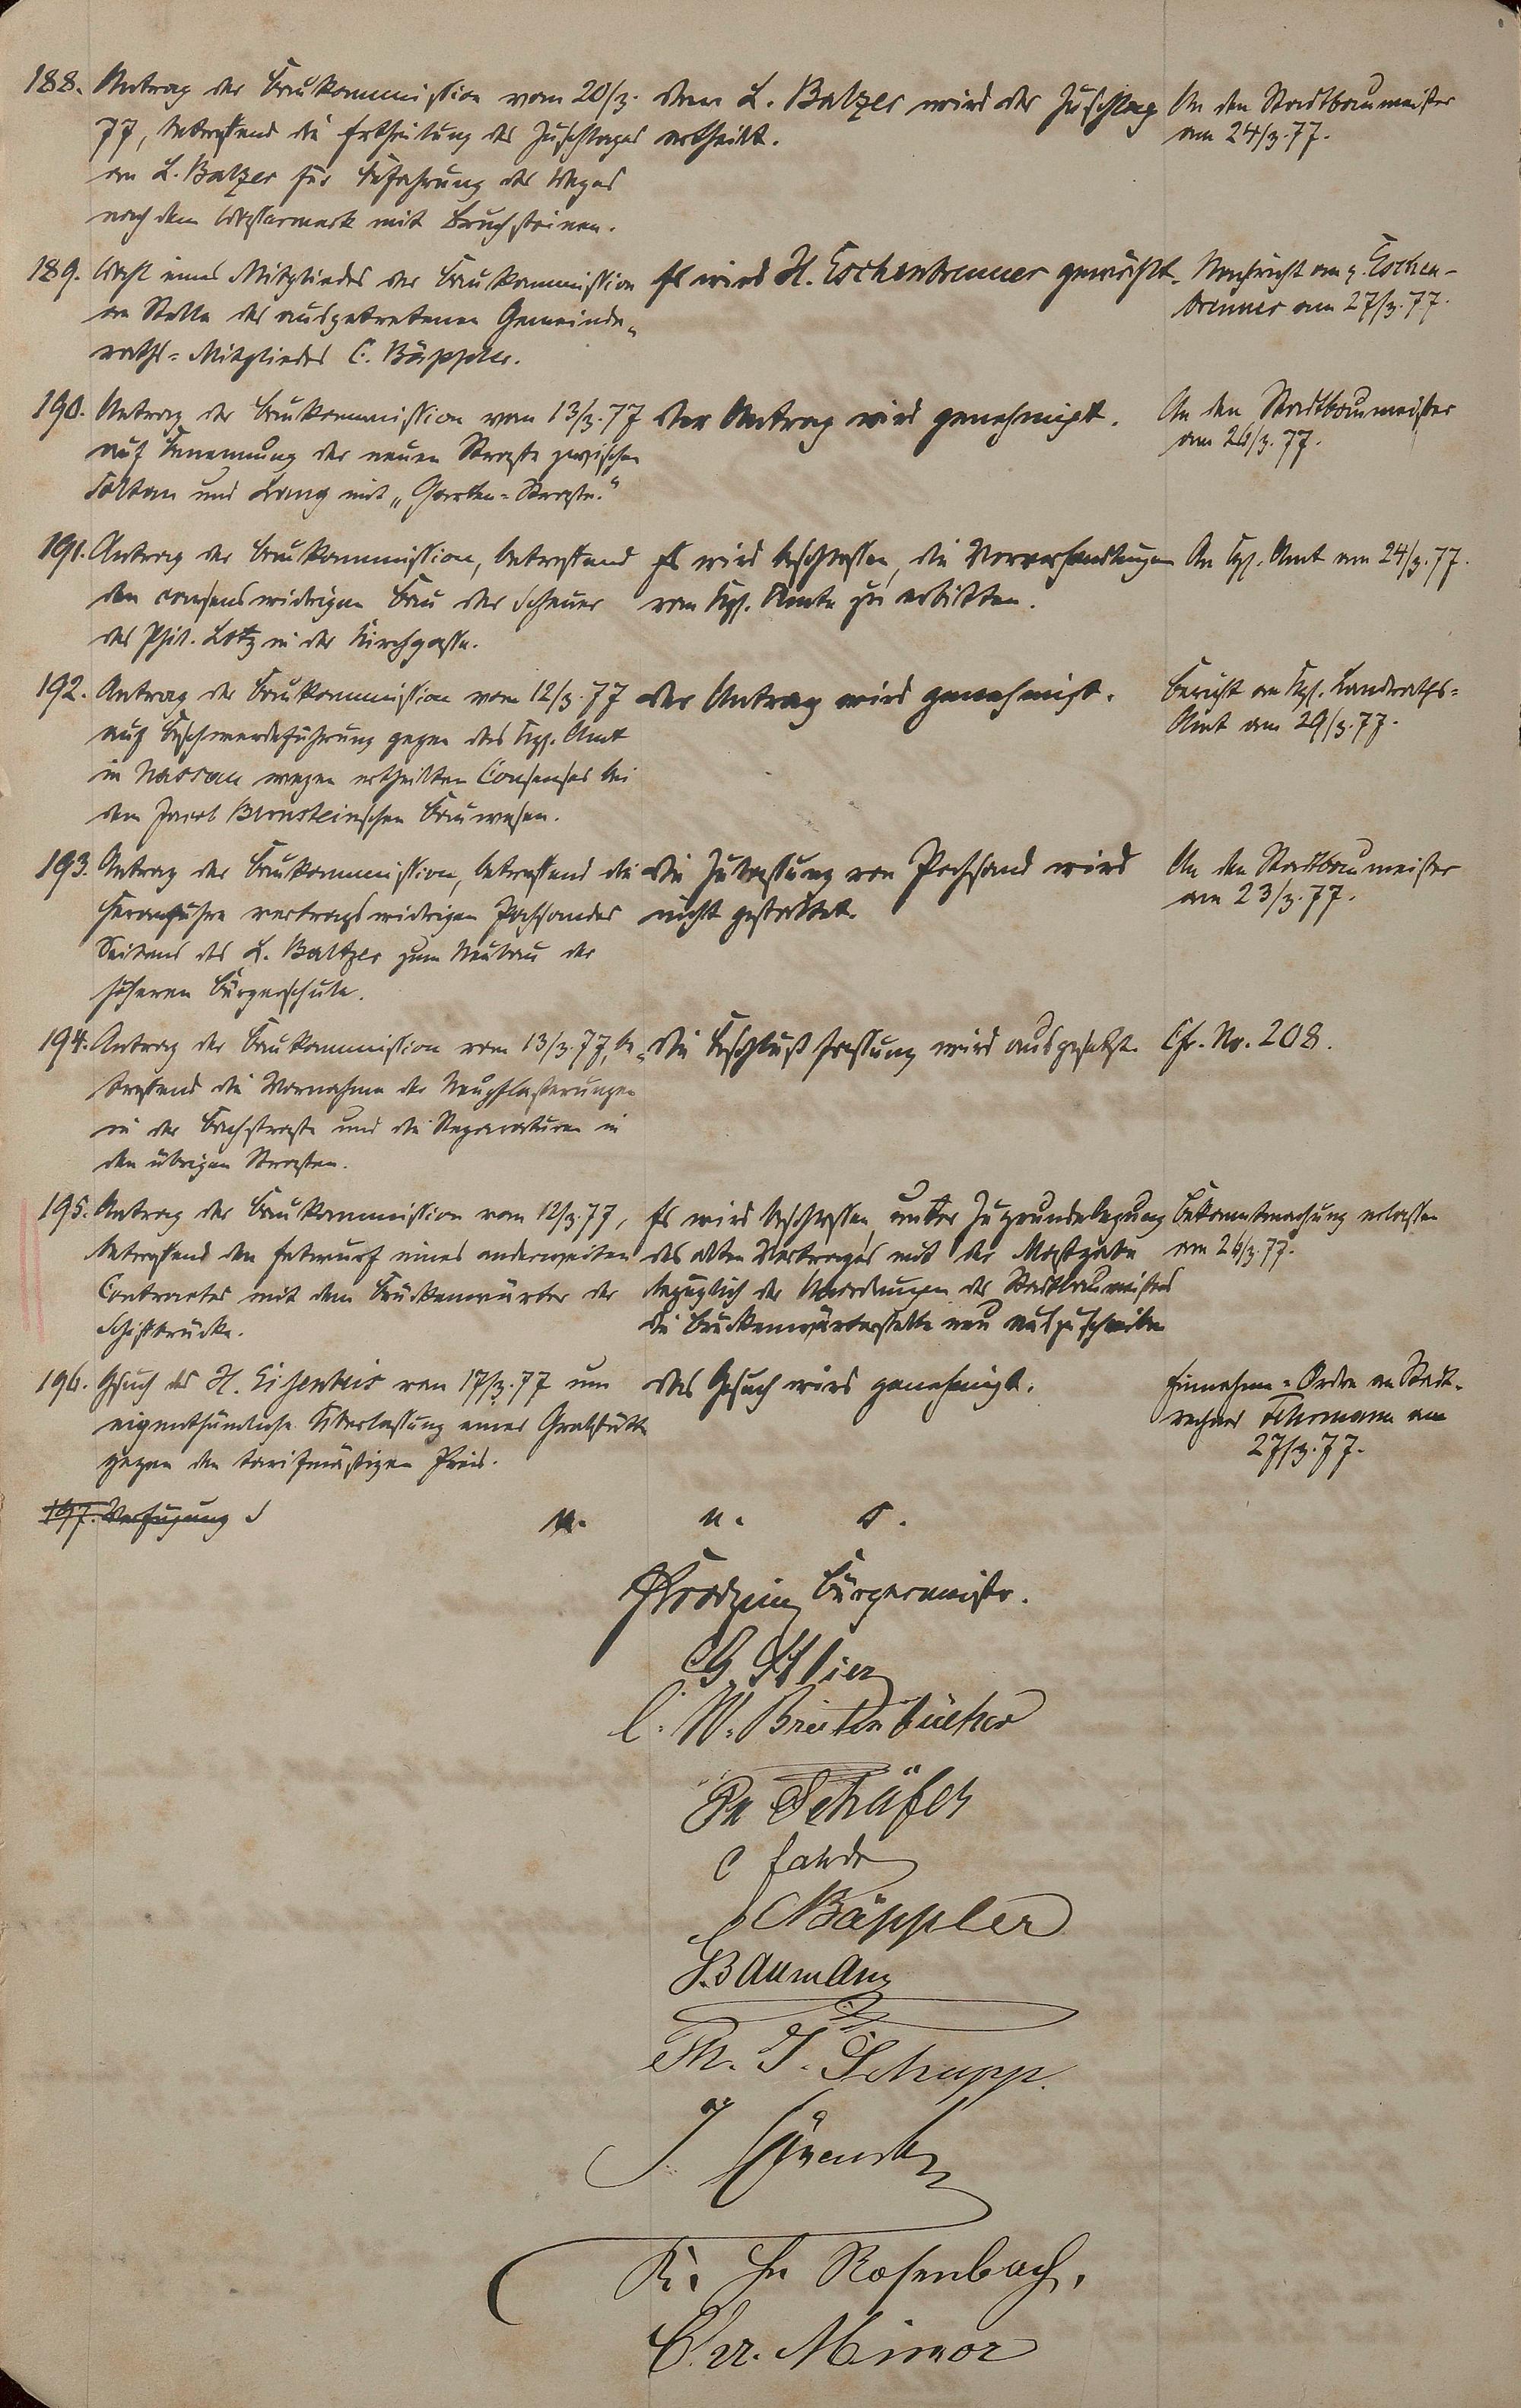 188. Antrag der Baukommission vom 20/3.
77, betreffend die Ertheilung des Zuschlages
an L. Balzer für Befahrung des Weges
nach dem mit Bruchsteinen.
Dem L. Balzer wird der Zuschlag
ertheilt.
An den Stadtbaumeister
am 24/3.77.
189. Wahl eines Mitgliedes der Baukommission
an Stelle des ausgetretenen Gemeinde-
raths=Mitgliedes C. Bäppler.
Es wird H. Eschenbrenner gewählt.
Nachricht an H. Eschen-
brenner am 27/3.77.
190. Antrag der Baukommission vom 13/3.77
auf Benennung der neuen Straße zwischen
Balzar und Lang mit „Garten=Straße."
Der Antrag wird genehmigt.
An den Stadtbaumeister
am 26/3.77.
191. Antrag der Baukommission, betreffend
den consenswidrigen Bau der Scheuer
des Phil. Lotz in der Kirchgasse.
Es wird beschlossen, die Vorverhandlungen
vom Kgl. Amte zu erbitten.
An Kgl. Amt am 24/3.77.
192. Antrag der Baukommission vom 12/3.77
auf Beschwerdeführung gegen das Kgl. Amt
in Nassau wegen ertheilten Consenses bei
dem Jacob Bernsteinschen Bauwesen.
Der Antrag wird genehmigt.
Bericht an Kgl. Landraths=
Amt am 29/3.77.
193. Antrag der Baukommission, betreffend die
Heranfuhre vertragswidrigen Pochsandes
Seitens des L. Baltzer zum Neubau der
höheren Bürgerschule.
Die Zulassung von Pochsand wird
nicht gestattet.
An den Stadtbaumeister
am 23/3.77.
194. Antrag der Baukommission vom 13/3.77, be-
treffend die Vornahme der Neupflasterungen
in der Bachstraße und die Reparaturen in
den übrigen Straßen.
Die Beschlußfassung wird ausgesetzt.
Cfr. No. 208.
195. Antrag der Baukommission vom 12/3.77,
betreffend den Entwurf eines anderweiten
Contractes mit dem Brückenwärter der
Schiffbrücke.
Es wird beschlossen, unter Zugrundelegung
des alten Vertrages mit der Maßgabe
bezüglich der Anordnungen des Stadtbaumeisters
die Brückenwärterstelle neu auszuschreiben
Bekanntmachung erlassen
am 26/3.77.
196. Gesuch des H. Eisenbeis vom 17/3.77 um
eigenthümliche Überlassung einer Grabstätte
gegen den tarifmäßigen Preis.
Das Gesuch wird genehmigt.
Einnahme=Ordre an Stadt-
rechner Fehrmann am
27/3.77.
197. Verfügung d
u. u. s.
Bürgermeister.
C. W. Breitenbücher
Ph Schäfer
C Bäppler
Baumann
Th. J. Schupp.
K. Hr Rosenbach.
Chr. Minor